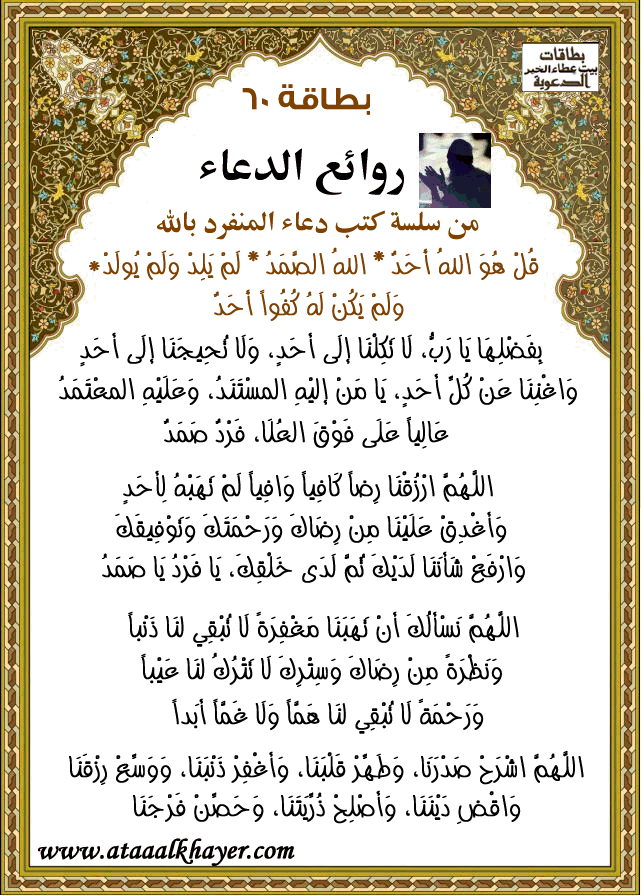 بطاقات
بيت عطاء الخير
الدعوية
بطاقة ٦٠
روائع الدعاء
من سلسة كتب دعاء المنفرد بالله
قُلْ هُوَ اللهُ أحَدٌ * اللهُ الصَّمَدُ * لَمْ يَلِدْ وَلَمْ يُولَدْ*
وَلَمْ يَكُنْ لَهُ كُفُواً أحَدٌ
بِفَضْلِهَا يَا رَبُّ، لَا تَكِلْنَا إلَى أحَدٍ، وَلَا تُحِيجَنَا إلَى أحَدٍ
وَاغْنِنَا عَنْ كُلِّ أحَدٍ، يَا مَنْ إليْهِ المسْتَنَدُ، وَعَلَيْهِ المعْتَمَدُ
عَالِياً عَلَى فَوْقَ العُلَا، فَرْدٌ صَمَدٌ
اللَّهُمَّ ارْزُقْنَا رِضاً كَافِياً وَافِياً لَمْ تَهَبْهُ لِأحَدٍ
وَأغْدِقْ عَلَيْنَا مِنْ رِضَاكَ وَرَحْمَتَكَ وَتَوْفِيقَكَ
وَارْفَعْ شَأنَنَا لَدَيْكَ ثُمَّ لَدَى خَلْقِكَ، يَا فَرْدُ يَا صَمَدُ
اللَّهُمَّ نَسْألُكَ أنْ تَهَبَنَا مَغْفِرَةً لَا تُبْقِي لنَا ذَنْباً
وَنَظْرَةً مِنْ رِضَاكَ وَسِتْرِكَ لَا تَتْرُكُ لنَا عَيْباً
وَرَحْمَةً لَا تُبْقِي لنَا هَمَّاً وَلَا غَمَّاً أبَداً
اللَّهُمَّ اشْرَحْ صَدْرَنَا، وَطَهِّرْ قَلْبَنَا، وَأغْفِرْ ذَنْبَنَا، وَوَسِّعْ رِزْقَنَا
وَاقْضِ دَيْنَنَا، وَأصْلِحْ ذُرِّيَتَنَا، وَحَصِّنْ فَرْجَنَا
www.ataaalkhayer.com